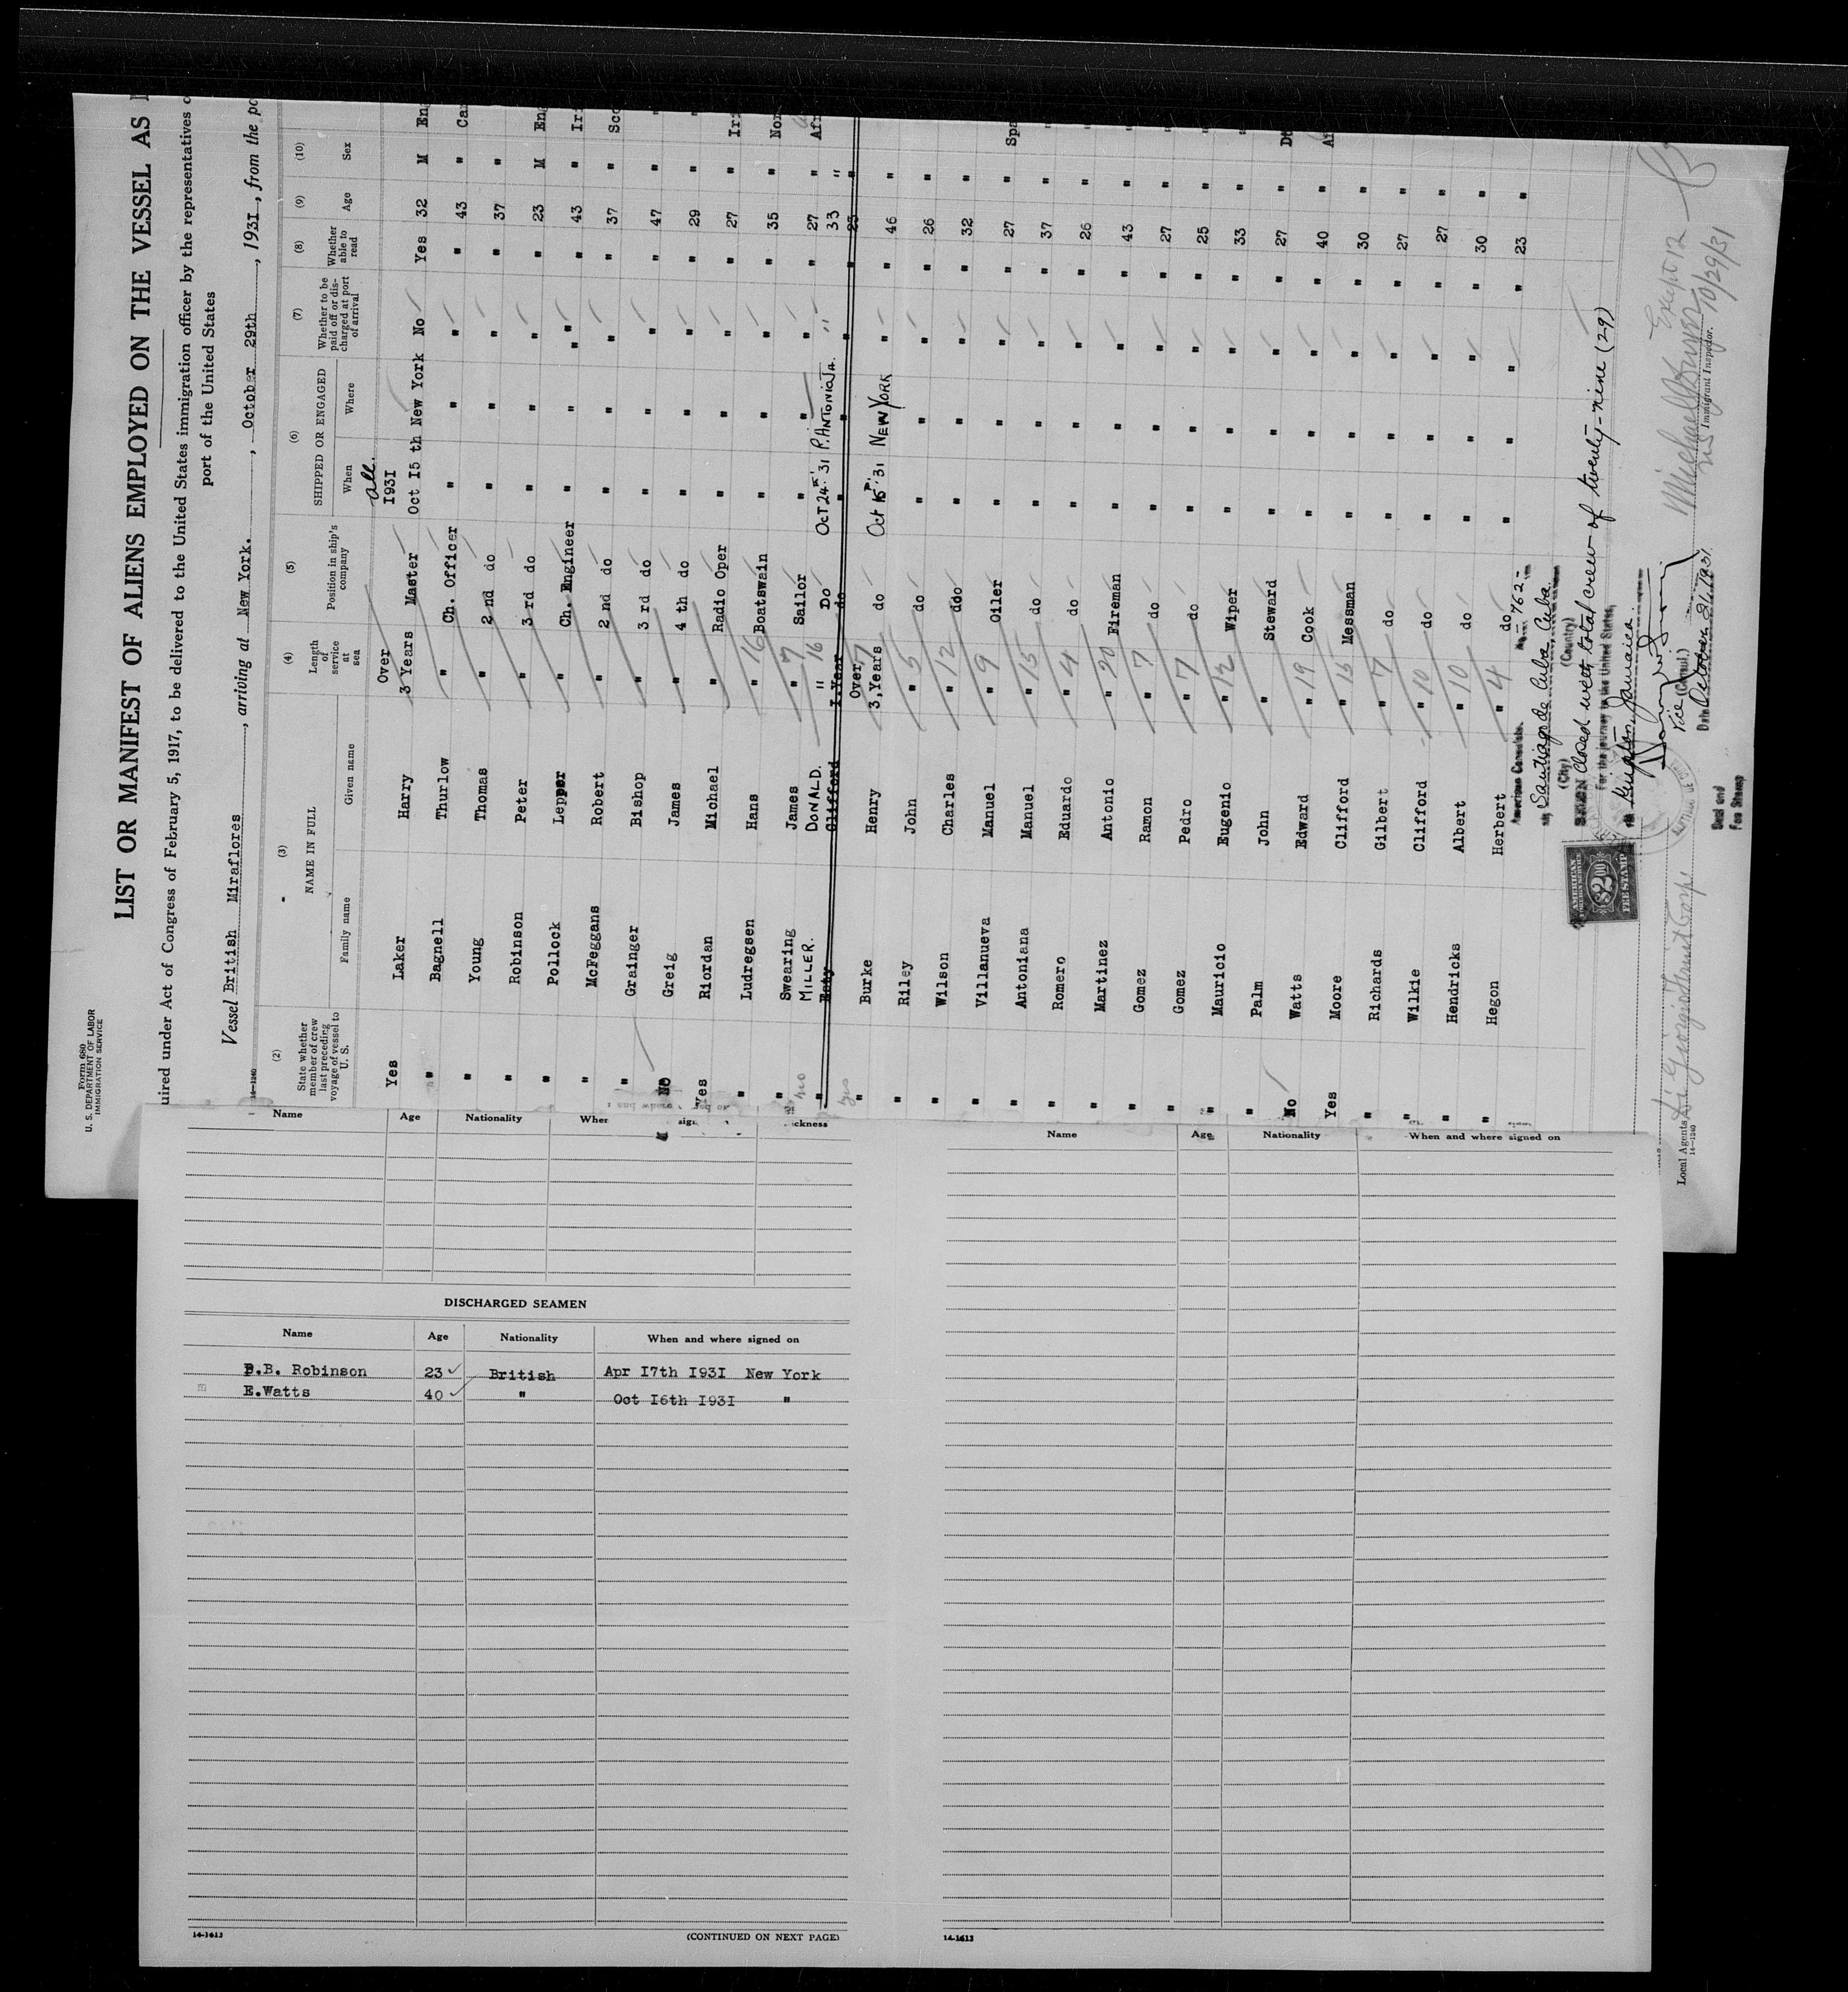 Form 680
U. S. DEPARTMENT OF LABOR
IMMIGRATION SERVICE
LIST OR MANIFEST OF ALIENS EMPLOYED ON THE VESSEL AS
uired under Act of Congress of February 5, 1917, to be delivered to the United States immigration officer by the representatives
port of the United States
Vessel British Miraflores, arriving at New York., October 29th, 1931, from the po
14—1240
(2) (3) (4) (5) (6) (7) (8) (9) (10)
State whether member of crew last preceding voyage of vessel to U. S. NAME IN FULL Length of service at sea Position in ship's company SHIPPED OR ENGAGED Whether to be paid off or discharged at port of arrival Whether able to read Age Sex
Family name Given name When Where
all.
Over 1931
Yes Laker Harry 3 Years Master Oct 15 th New York No Yes 32 M En
" Bagnell Thurlow " Ch. Officer " " " " 43 " Ca
" Young Thomas " 2 nd do " " " " 37 "
" Robinson Peter " 3 rd do " " " " 23 M En
" Pollock Lepper " Ch. Engineer " " " " 43 " Ir
" McFeggans Robert " 2 nd do " " " " 37 " Sco
" Grainger Bishop " 3 rd do " " " " 47 " "
No Greig James " 4 th do " " " " 29 " "
Yes Riordan Michael " Radio Oper " " " " 27 " Ir
" Ludregsen Hans " 16 Boatswain " " " " 35 " Nor
" Swearing James " 7 Sailor " " " " 27 " Afr
no MILLER. DONALD. " 16 Do Oct 24 '31 P. ANTONIO JA. " 33 "
Clifford 1 Year do " " " " 23 "
" Burke Henry Over 3,Years 7 do Oct 15 '31 NEW YORK " " 46 "
" Riley John " 5 do " " " " 26 "
" Wilson Charles " 12 do " " " " 32 "
" Villanueva Manuel " 9 Oiler " " " " 27 " Spa
" Antoniana Manuel " 15 do " " " " 37 " "
" Romero Eduardo " 4 do " " " " 26 " "
" Martinez Antonio " 20 Fireman " " " " 43 " "
" Gomez Ramon " 7 do " " " " 27 " "
" Gomez Pedro " 7 do " " " " 25 " "
" Mauricio Eugenio " 12 Wiper " " " " 33 " "
" Palm John " Steward " " " " 27 " D
No Watts Edward " 19 Cook " " " " 40 " Af
Yes Moore Clifford " 15 Messman " " " " 30 "
" Richards Gilbert " 7 do " " " " 27 "
" Wilkie Clifford " 10 do " " " " 27 "
" Hendricks Albert " 10 do " " " " 30 "
" Hegon Herbert " 4 do " " " " 23 "
American Consulate. No. 762-
at Santiago de Cuba, Cuba.
(City) (Country)
SEEN Closed with total crew of twenty-nine (29)
For the journey to the United States
Kingston, Jamaica.
Vice (Consul.)
Date October 24, 1931.
Seal and
Fee Stamp
AMERICAN
FOREIGN SERVICE
$2.00
FEE STAMP
Immigrant Inspector.
10/29/31
Local Agents Di Giorgio Fruit Corp
14—1240
Name Age Nationality
Name Age Nationality When and where signed on
DISCHARGED SEAMEN
Name Age Nationality When and where signed on
P.B. Robinson 23 British Apr 17th 1931 New York
E.Watts 40 " Oct 16th 1931 "
14-1613 (CONTINUED ON NEXT PAGE)
14-1613